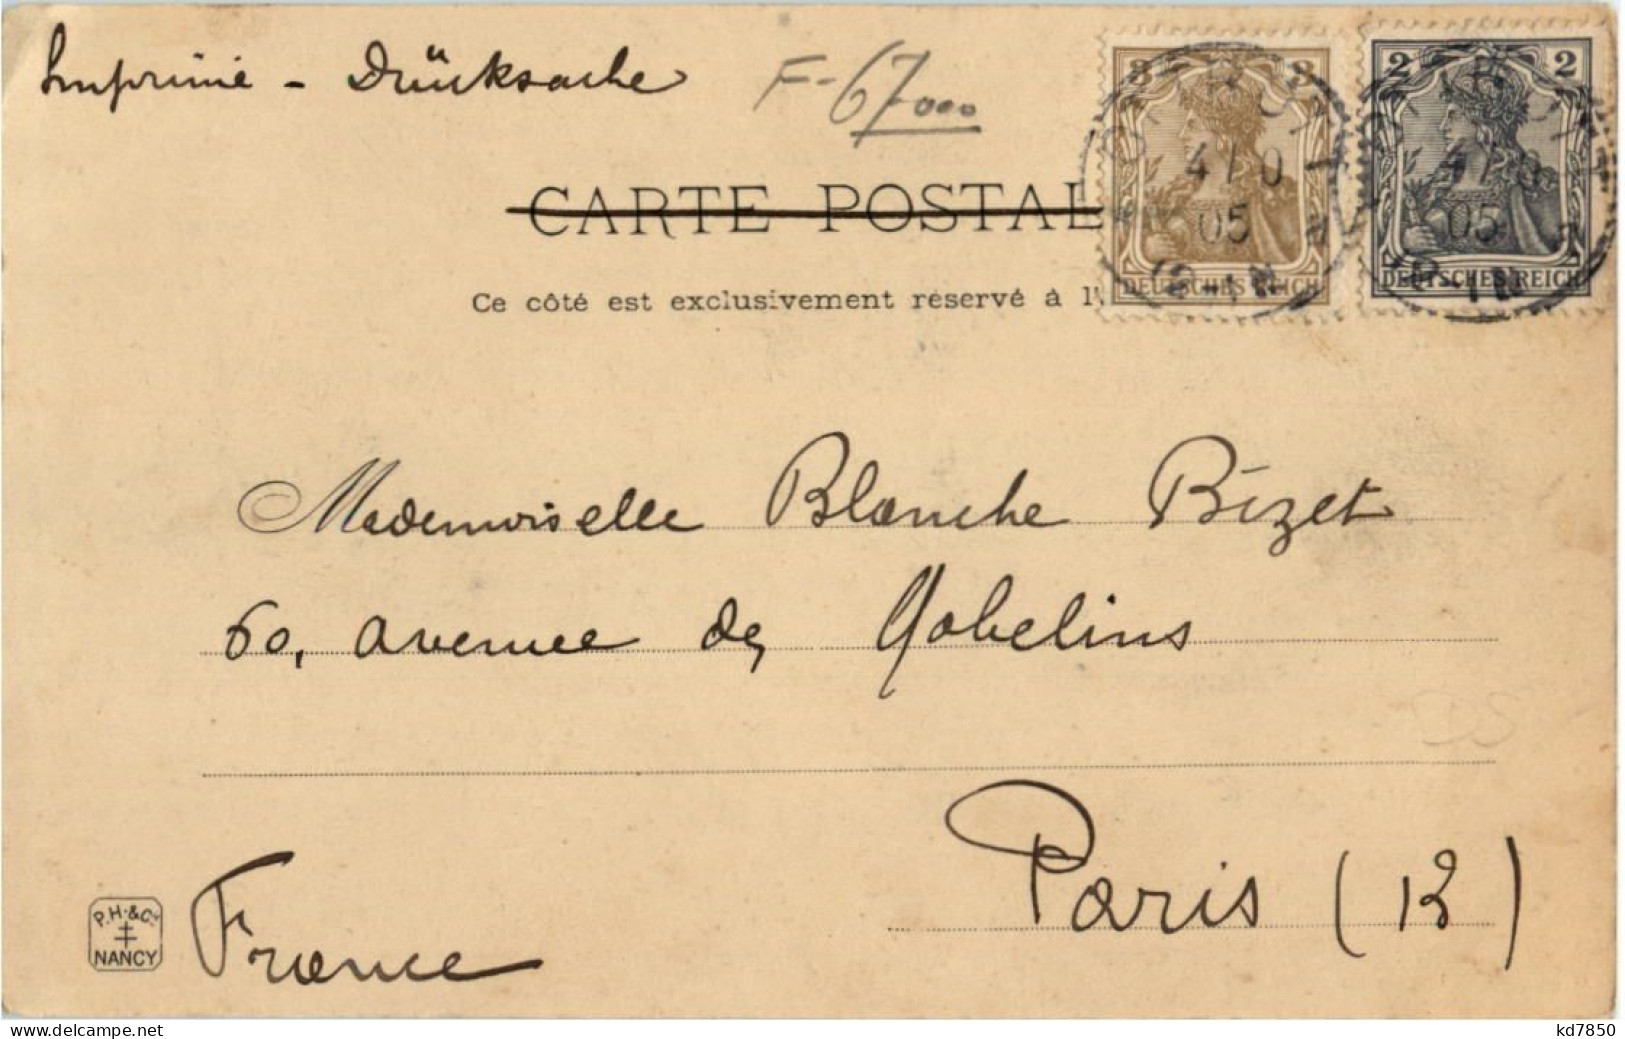 Imprimé - Drücksache
F-67000
3 3
2 2
CARTE POSTAL
4/0
05
12-1N
05
DEUTSCHES REICH
DEUTSCHES REICH
Ce côté est exclusivement réservé à l'
Mademoiselle Blanche Bizet
60, avenue des Gobelins
Paris (13)
France
P.H.&Cie
NANCY
delcampe.net
kd7850